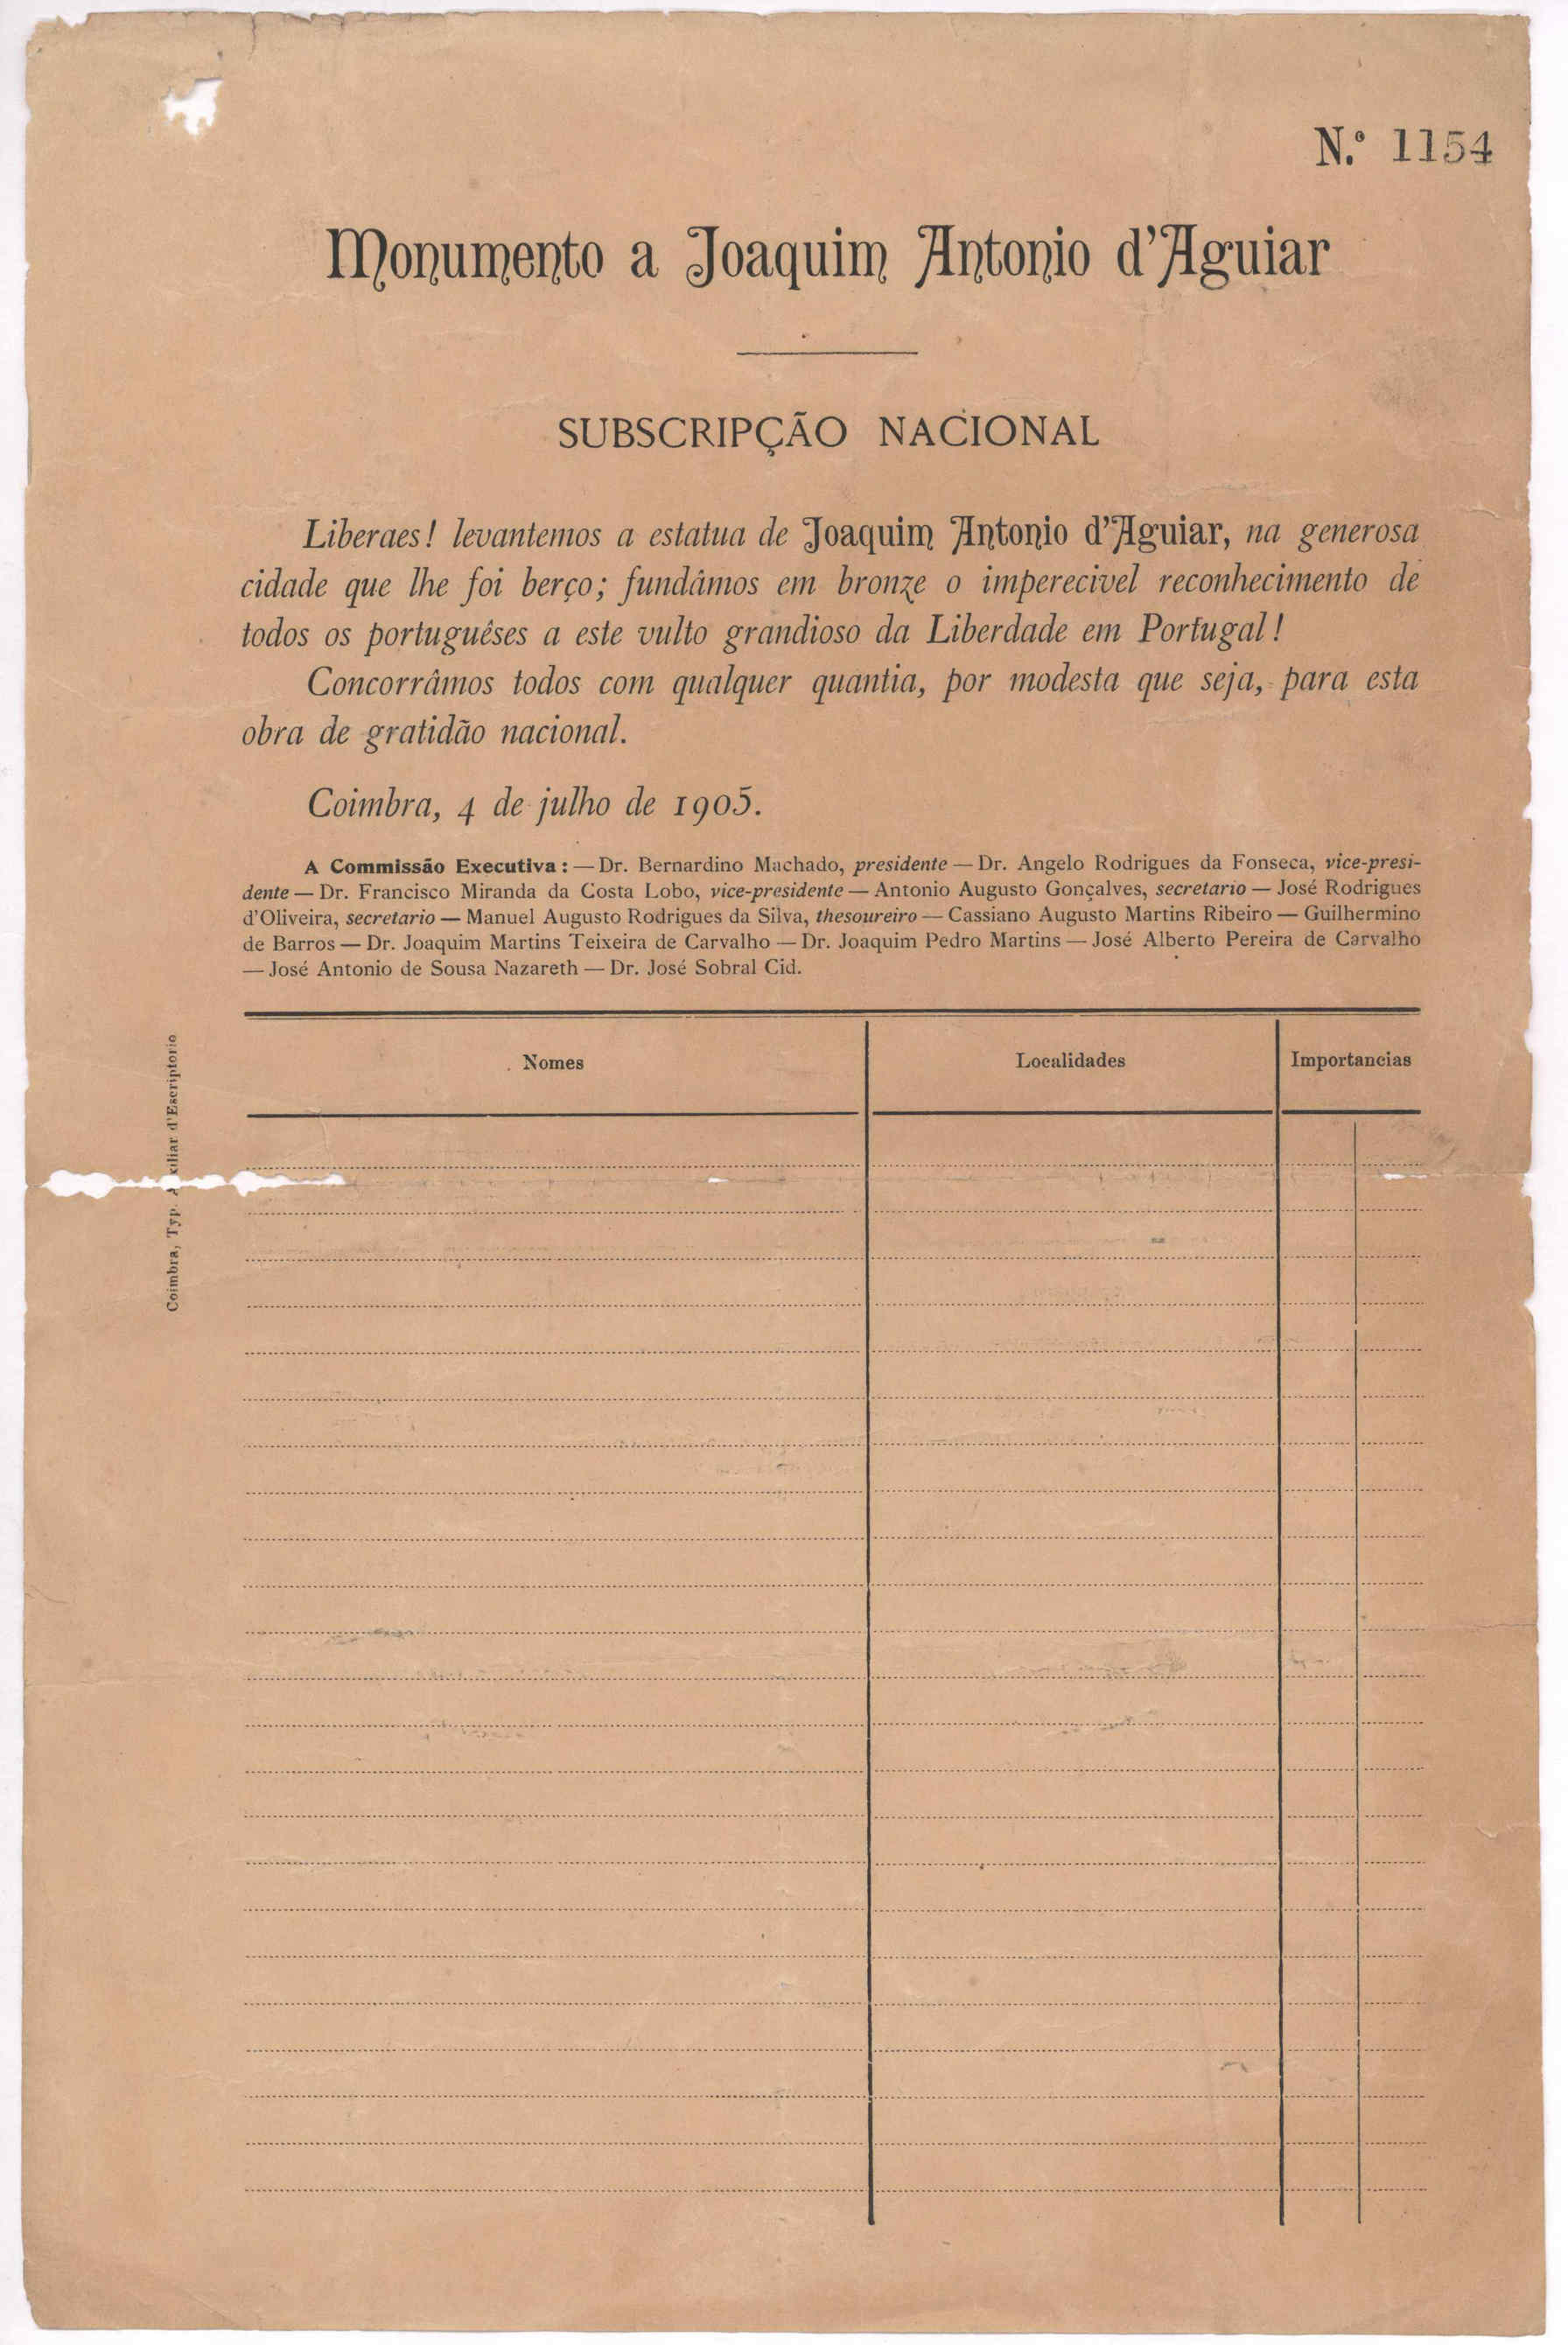 N.º 1154
Monumento a Joaquim Antonio d'Aguiar
SUBSCRIPÇÃO NACIONAL
Liberaes! levantemos a estatua de Joaquim Antonio d'Aguiar, na generosa
cidade que lhe foi berço; fundâmos em bronze o imperecivel reconhecimento de
todos os portuguêses a este vulto grandioso da Liberdade em Portugal!
Concorrâmos todos com qualquer quantia, por modesta que seja, para esta
obra de gratidão nacional.
Coimbra, 4 de julho de 1905.
A Commissão Executiva: — Dr. Bernardino Machado, presidente — Dr. Angelo Rodrigues da Fonseca, vice-presi-
dente — Dr. Francisco Miranda da Costa Lobo, vice-presidente — Antonio Augusto Gonçalves, secretario — José Rodrigues
d'Oliveira, secretario — Manuel Augusto Rodrigues da Silva, thesoureiro — Cassiano Augusto Martins Ribeiro — Guilhermino
de Barros — Dr. Joaquim Martins Teixeira de Carvalho — Dr. Joaquim Pedro Martins — José Alberto Pereira de Carvalho
— José Antonio de Sousa Nazareth — Dr. José Sobral Cid.
Nomes Localidades Importancias
Coimbra, Typ. d'Escriptorio